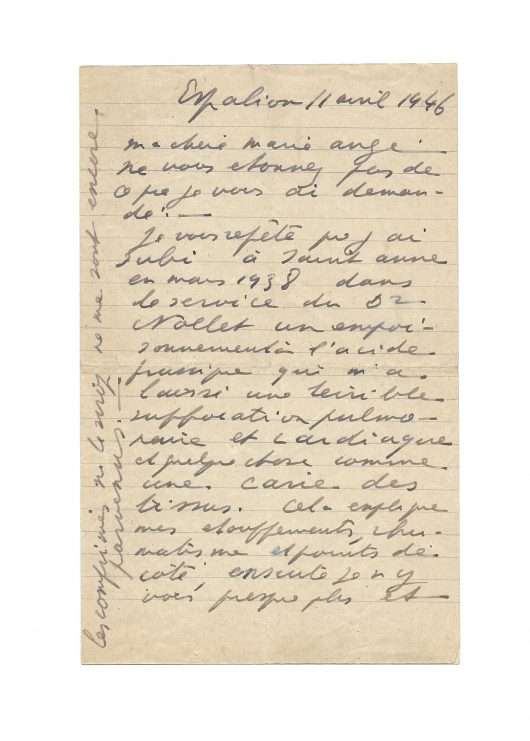 Espalion 11 avril 1946
ma chère marie ange
ne vous etonnez pas de
ce que je vous ai deman-
dé. —
Je vous repète que j ai
subi à Sainte anne
en mars 1938 dans
le service du Dr
Nollet un empoi-
sonnement à l'acide
prussique qui m'a
laissé une terrible
suffocation pulmo-
naire et cardiaque
et quelque chose comme
une carie des
tissus. Cela explique
mes etouffements, rhu-
matisme et points de
côté, ensuite je n y
vois presque plus et
les comprimés ne me sont encore
parvenus. —